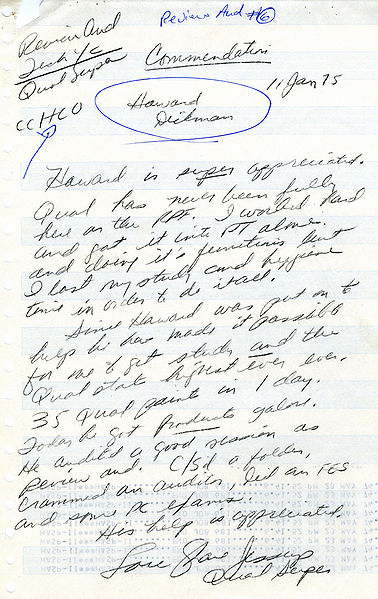 Review Aud #6
Review Aud
Tech 1/c
Qual Super
Commendation
11 Jan 75
CC HCO
Howard
Dickman
Howard is super appreciated.
Qual has never been fully
here on the RPF. I worked hard
and got it into PT alone.
and doing it's functions but
I lost my study and hygiene
time in order to do it all.
Since Howard was put on to
help he has made it possible
for me to get study and the
Qual stats highest ever ever.
35 Qual points in 1 day.
Today he got Products galore.
He audited a good session as
Review Aud. C/Sd a folder,
Crammed an auditor, did an FES
and some PC exams.
His help is appreciated.
Love
Qual Super